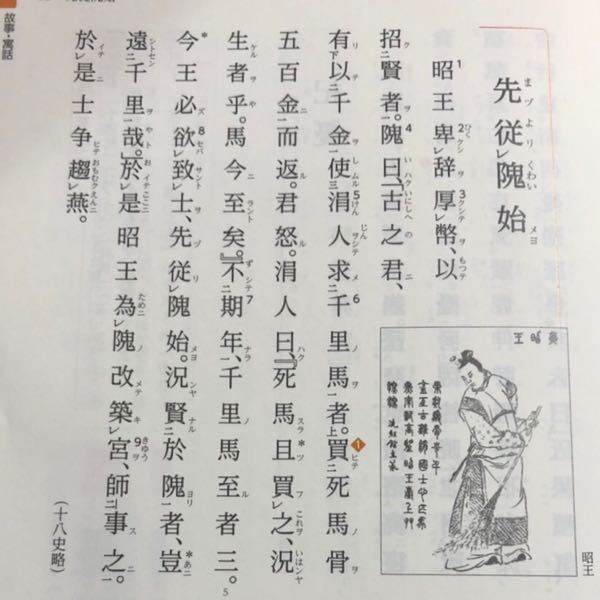 故事・寓話
先従レ隗始
昭王卑レ辞厚レ幣、以
招二賢者一。隗曰、「古之君、
有下以二千金一使三涓人求二千里馬一者上。買二死馬骨
五百金一而返。君怒。涓人曰、『死馬且買レ之、況
生者乎。馬今至矣。』不二期年一、千里馬至者三。
今王必欲レ致レ士、先従レ隗始。況賢二於隗一者、豈
遠二千里一哉。」於レ是昭王為レ隗改築レ宮、師二事之一。
於レ是士争趨レ燕。
(十八史略)
王昭燕
昭王
5